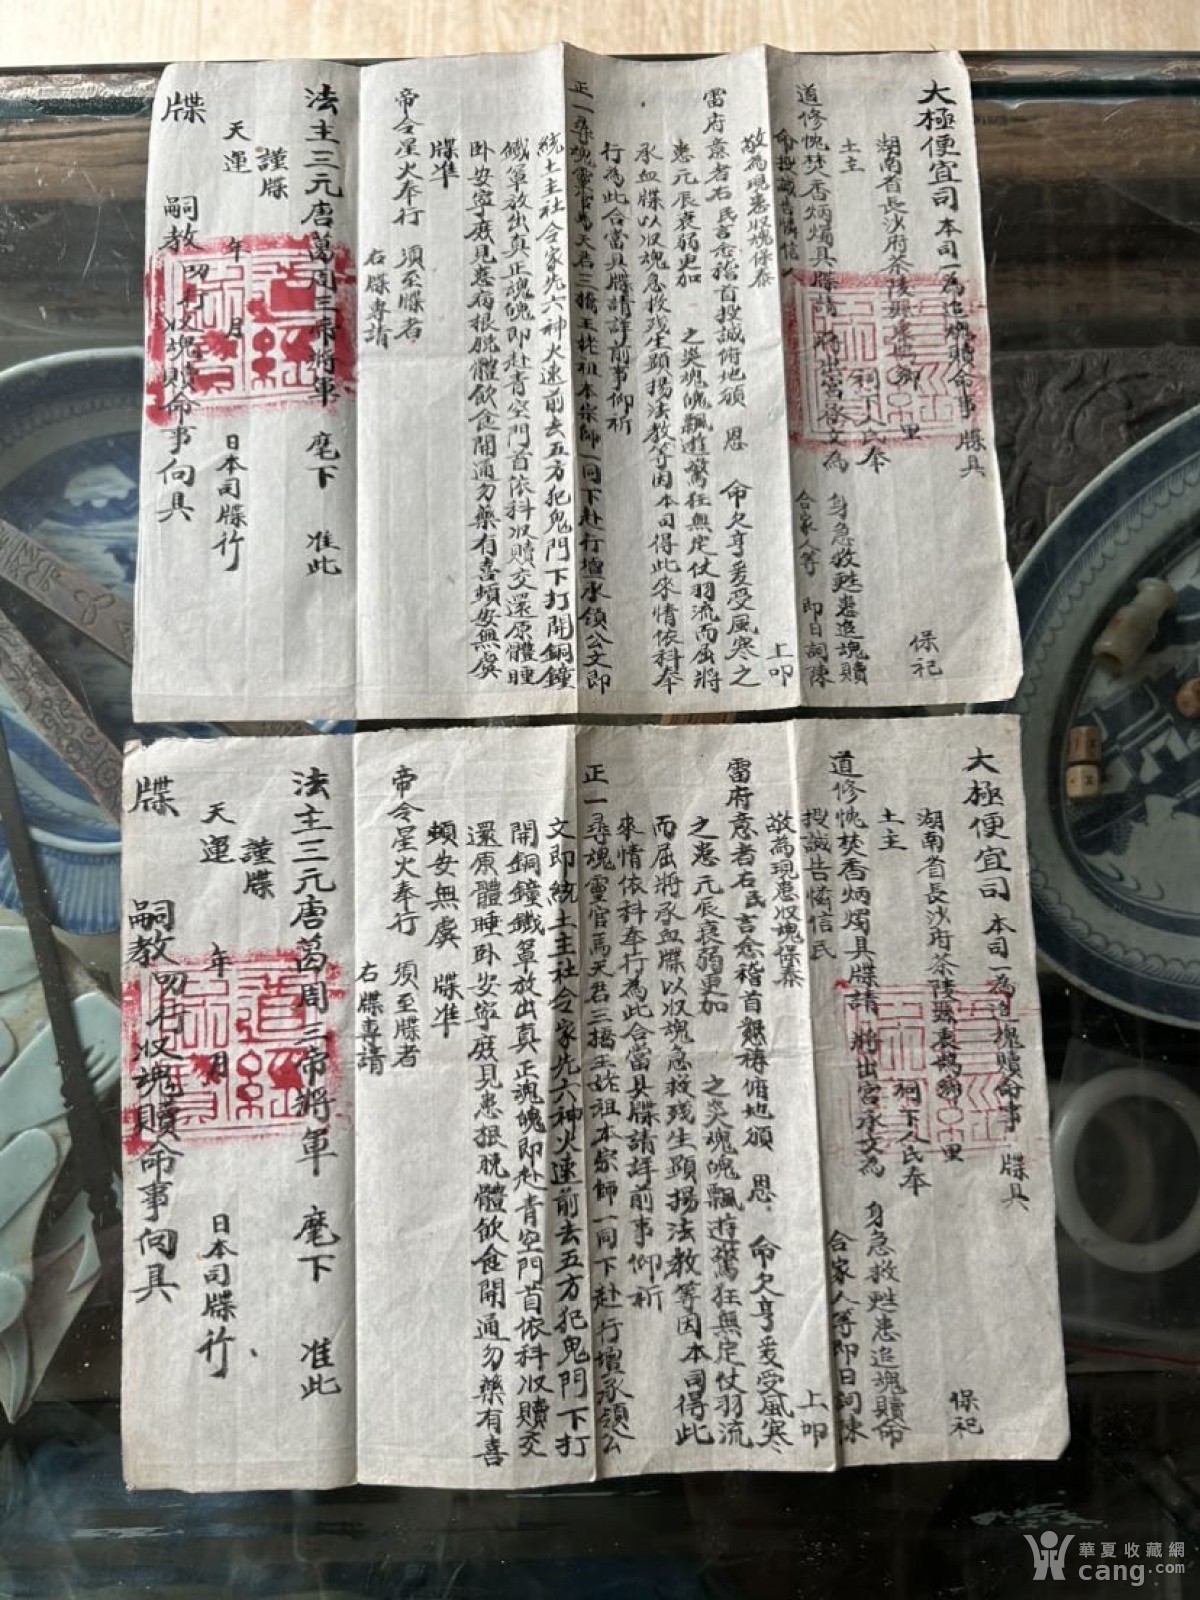 太極便宜司 本司一為追魂贖命事 牒具
湖南省長沙府茶陵縣 鄉 里 保祀
土主 祠下人民奉
道修愧焚香炳燭具牒請 將出宮啓文為 身急救甦患追魂贖
命投誠告憐信 合家人等 即日詞陳
敬為現患收魂保泰 上叩
雷府意者右民言念稽首投誠俯地願 恩 命欠亨爰受風寒之
患元辰衰弱更加 之災魂魄飄遊驚狂無定仗羽流而屈將
承血牒以收魂急救殘生顯揚法教等因本司得此來情依科奉
行為此合當具牒請詳前事仰祈
正一尋魂靈官馬天君三橋王姥祖本宗師一同下赴行壇承領公文即
統土主社令家先六神火速前去五方犯鬼門下打開銅鐘
鐵箪放出真正魂魄即赴青空門首依科收贖交還原體睡
卧安寧庶見患病根脫體飲食開通勿藥有喜頻安無虞
牒准
帝令星火奉行 須至牒者
右牒專請
法主三元唐葛周三帝將軍 麾下 准此
謹牒
天運 年 月 日本司牒行
牒 嗣教 叨行收魂贖命事向具
太極便宜司 本司一為追魂贖命事 牒具
湖南省長沙府茶陵縣 鄉 里 保祀
土主 祠下人民奉
道修愧焚香炳燭具牒請 將出宮承文為 身急救甦患追魂贖命
投誠告憐信民 合家人等即日詞陳
敬為現患收魂保泰 上叩
雷府意者右民言念稽首懇禱俯地願 恩 命欠亨爰受風寒
之患元辰衰弱更加 之災魂魄飄遊驚狂無定仗羽流
而屈將承血牒以收魂急救殘生顯揚法教等因本司得此
來情依科奉行為此合當具牒請詳前事仰祈
正一尋魂靈官馬天君三橋王姥祖本宗師一同下赴行壇承領公
文即統土主社令家先六神火速前去五方犯鬼門下打
開銅鐘鐵箪放出真正魂魄即赴青空門首依科收贖交
還原體睡卧安寧庶見患根脫體飲食開通勿藥有喜
頻安無虞 牒准
帝令星火奉行 須至牒者
右牒專請
法主三元唐葛周三帝將軍 麾下 准此
謹牒
天運 年 月 日本司牒行
牒 嗣教 叨行收魂贖命事向具
華夏收藏網
cang.com